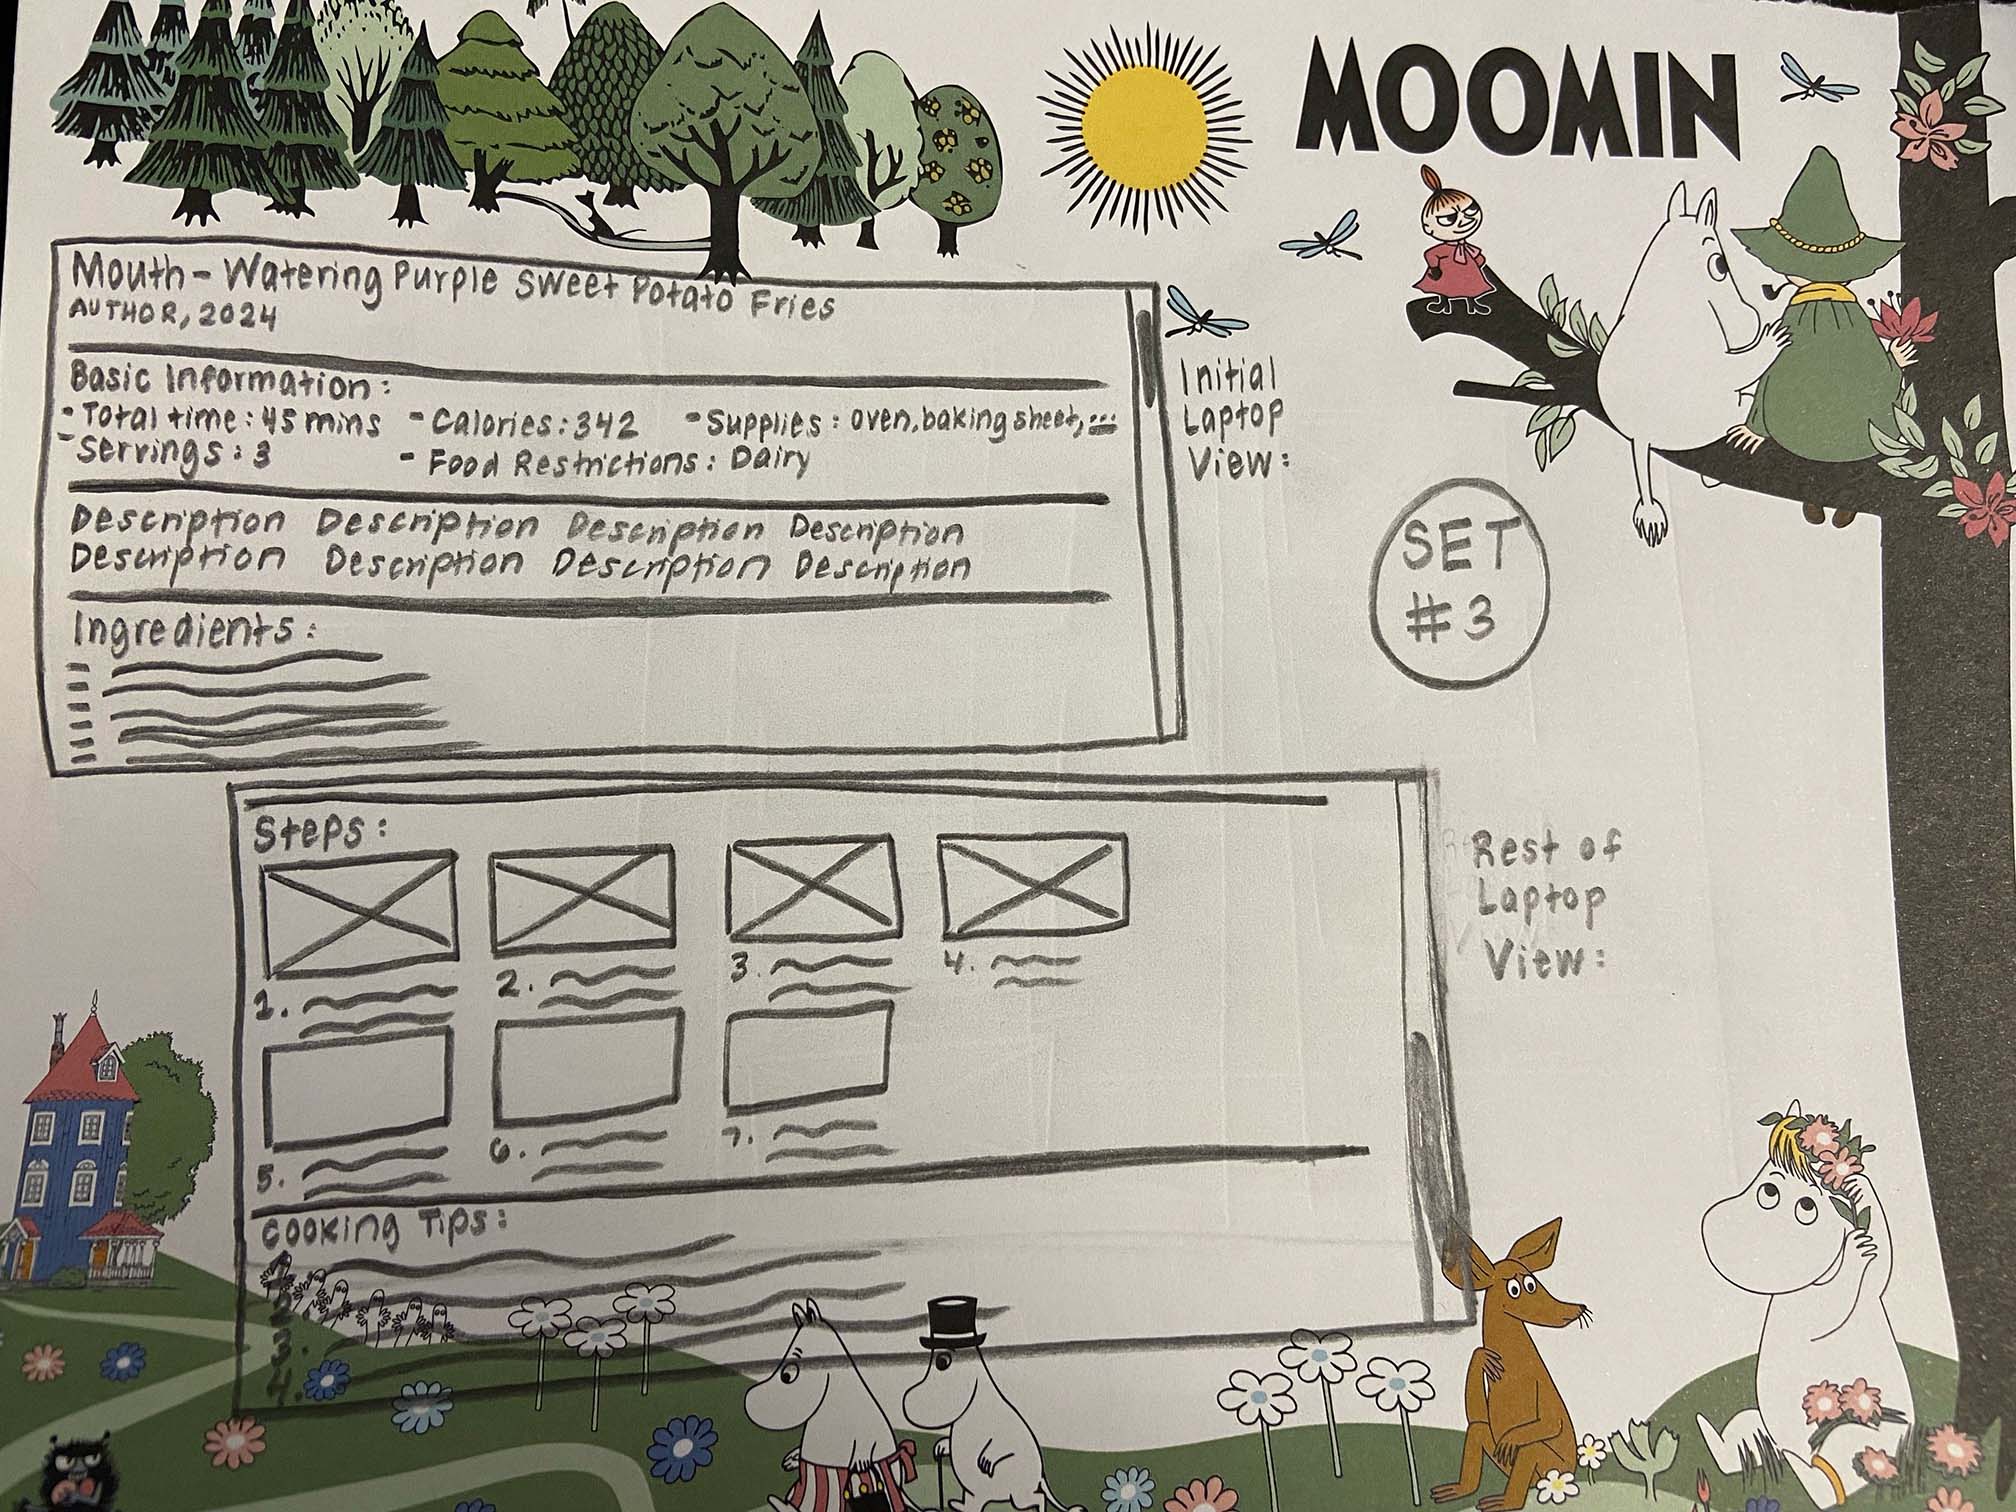 MOOMIN
Mouth-Watering Purple Sweet Potato Fries
AUTHOR, 2024
Basic Information:
- Total time: 45 mins - Calories: 342 - Supplies: oven, baking sheet, ...
- Servings: 3 - Food Restrictions: Dairy
Description Description Description Description
Description Description Description Description
Ingredients:
Initial
Laptop
View:
SET
#3
Steps:
1. 2. 3. 4.
5. 6. 7.
Cooking Tips:
Rest of
Laptop
View: